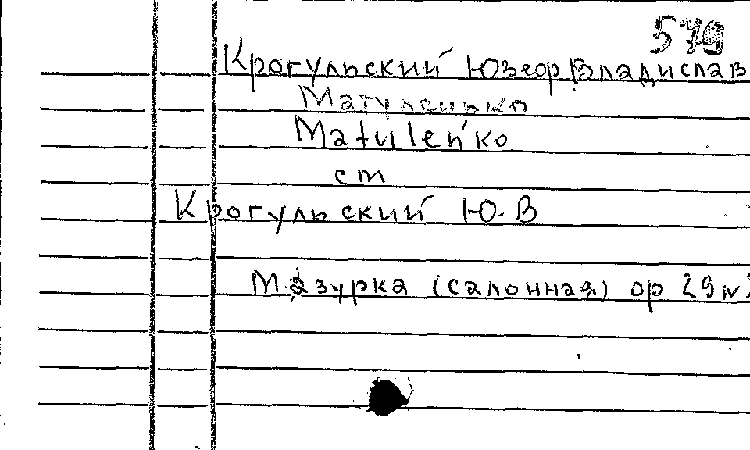 579
Крогульский Юзеф Владислав
Матуленько
Matuleńko
см
Крогульский Ю.В
Мазурка (салонная) ор 29 №